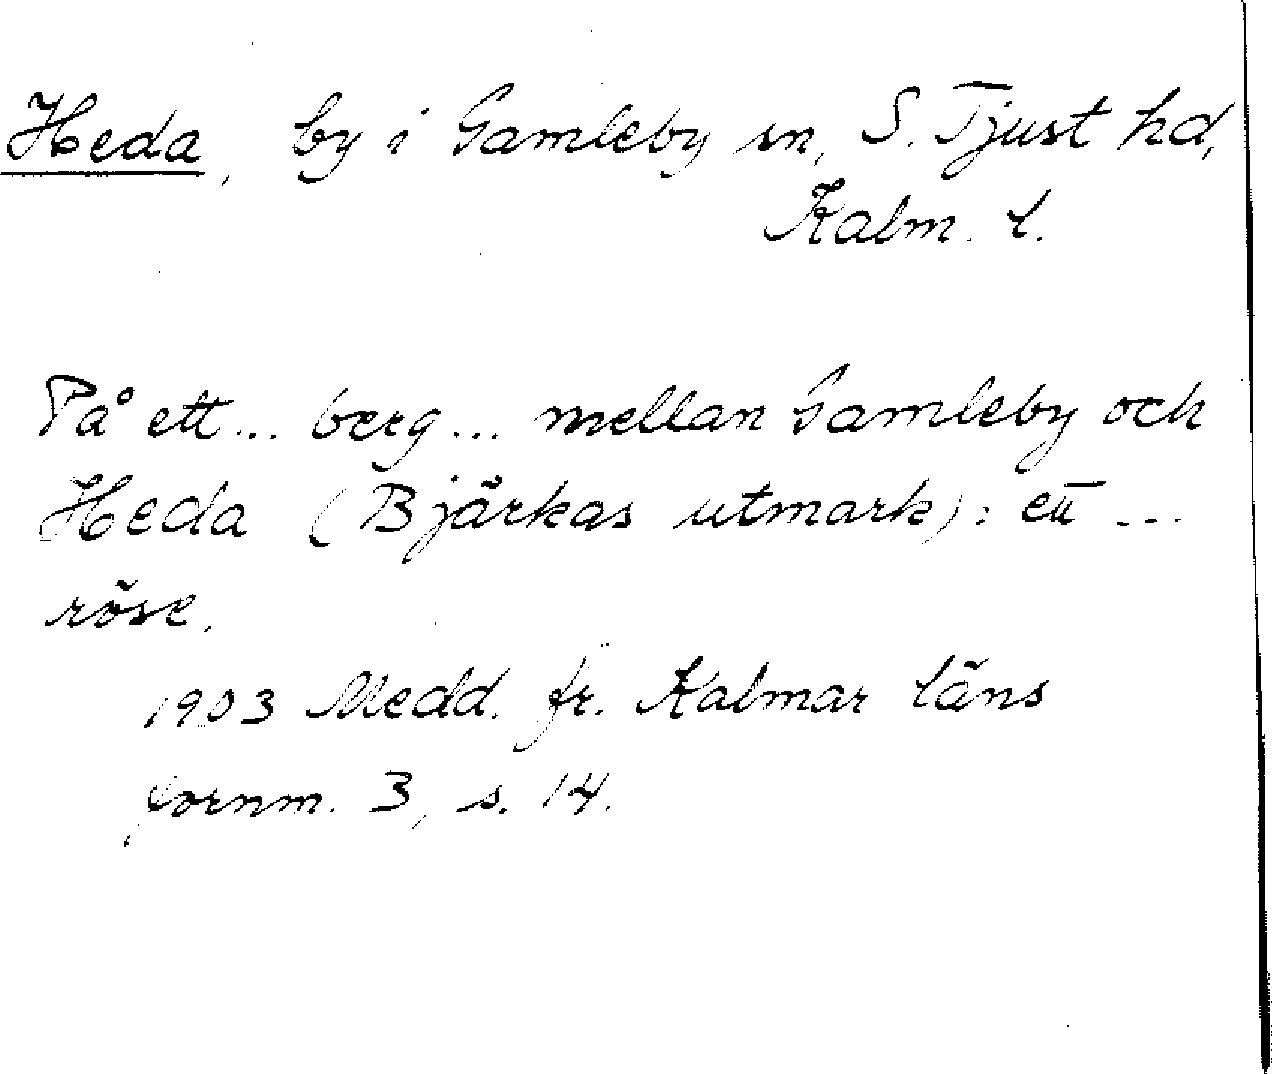 Heda, by i Gamleby sn, S. Tjust hd,
Kalm. l.
På ett... berg... mellan Gamleby och
Heda (Bjärkas utmark): ett ...
röse.
1903 Medd. fr. Kalmar läns
fornm. 3, s. 14.